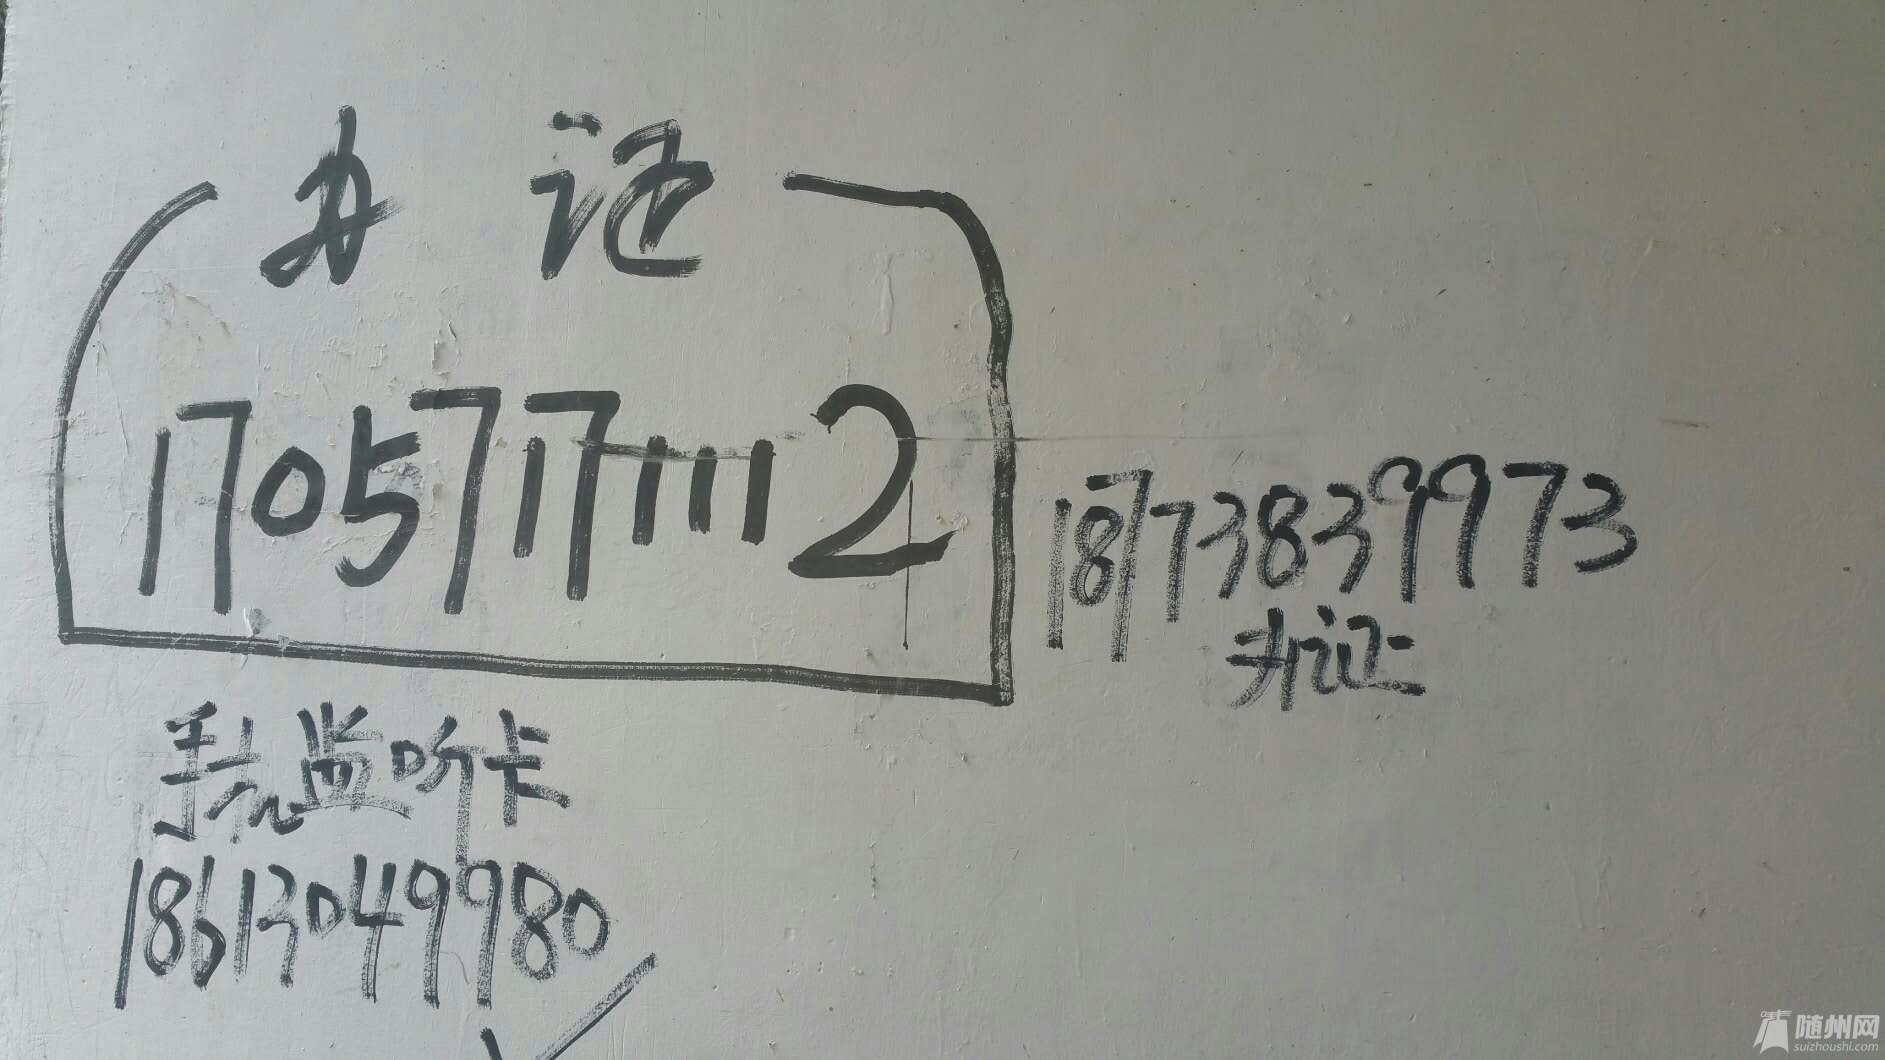 办 证
17057171112
18773839973
办证
手机监听卡
18613049980
随州网
suizhoushi.com